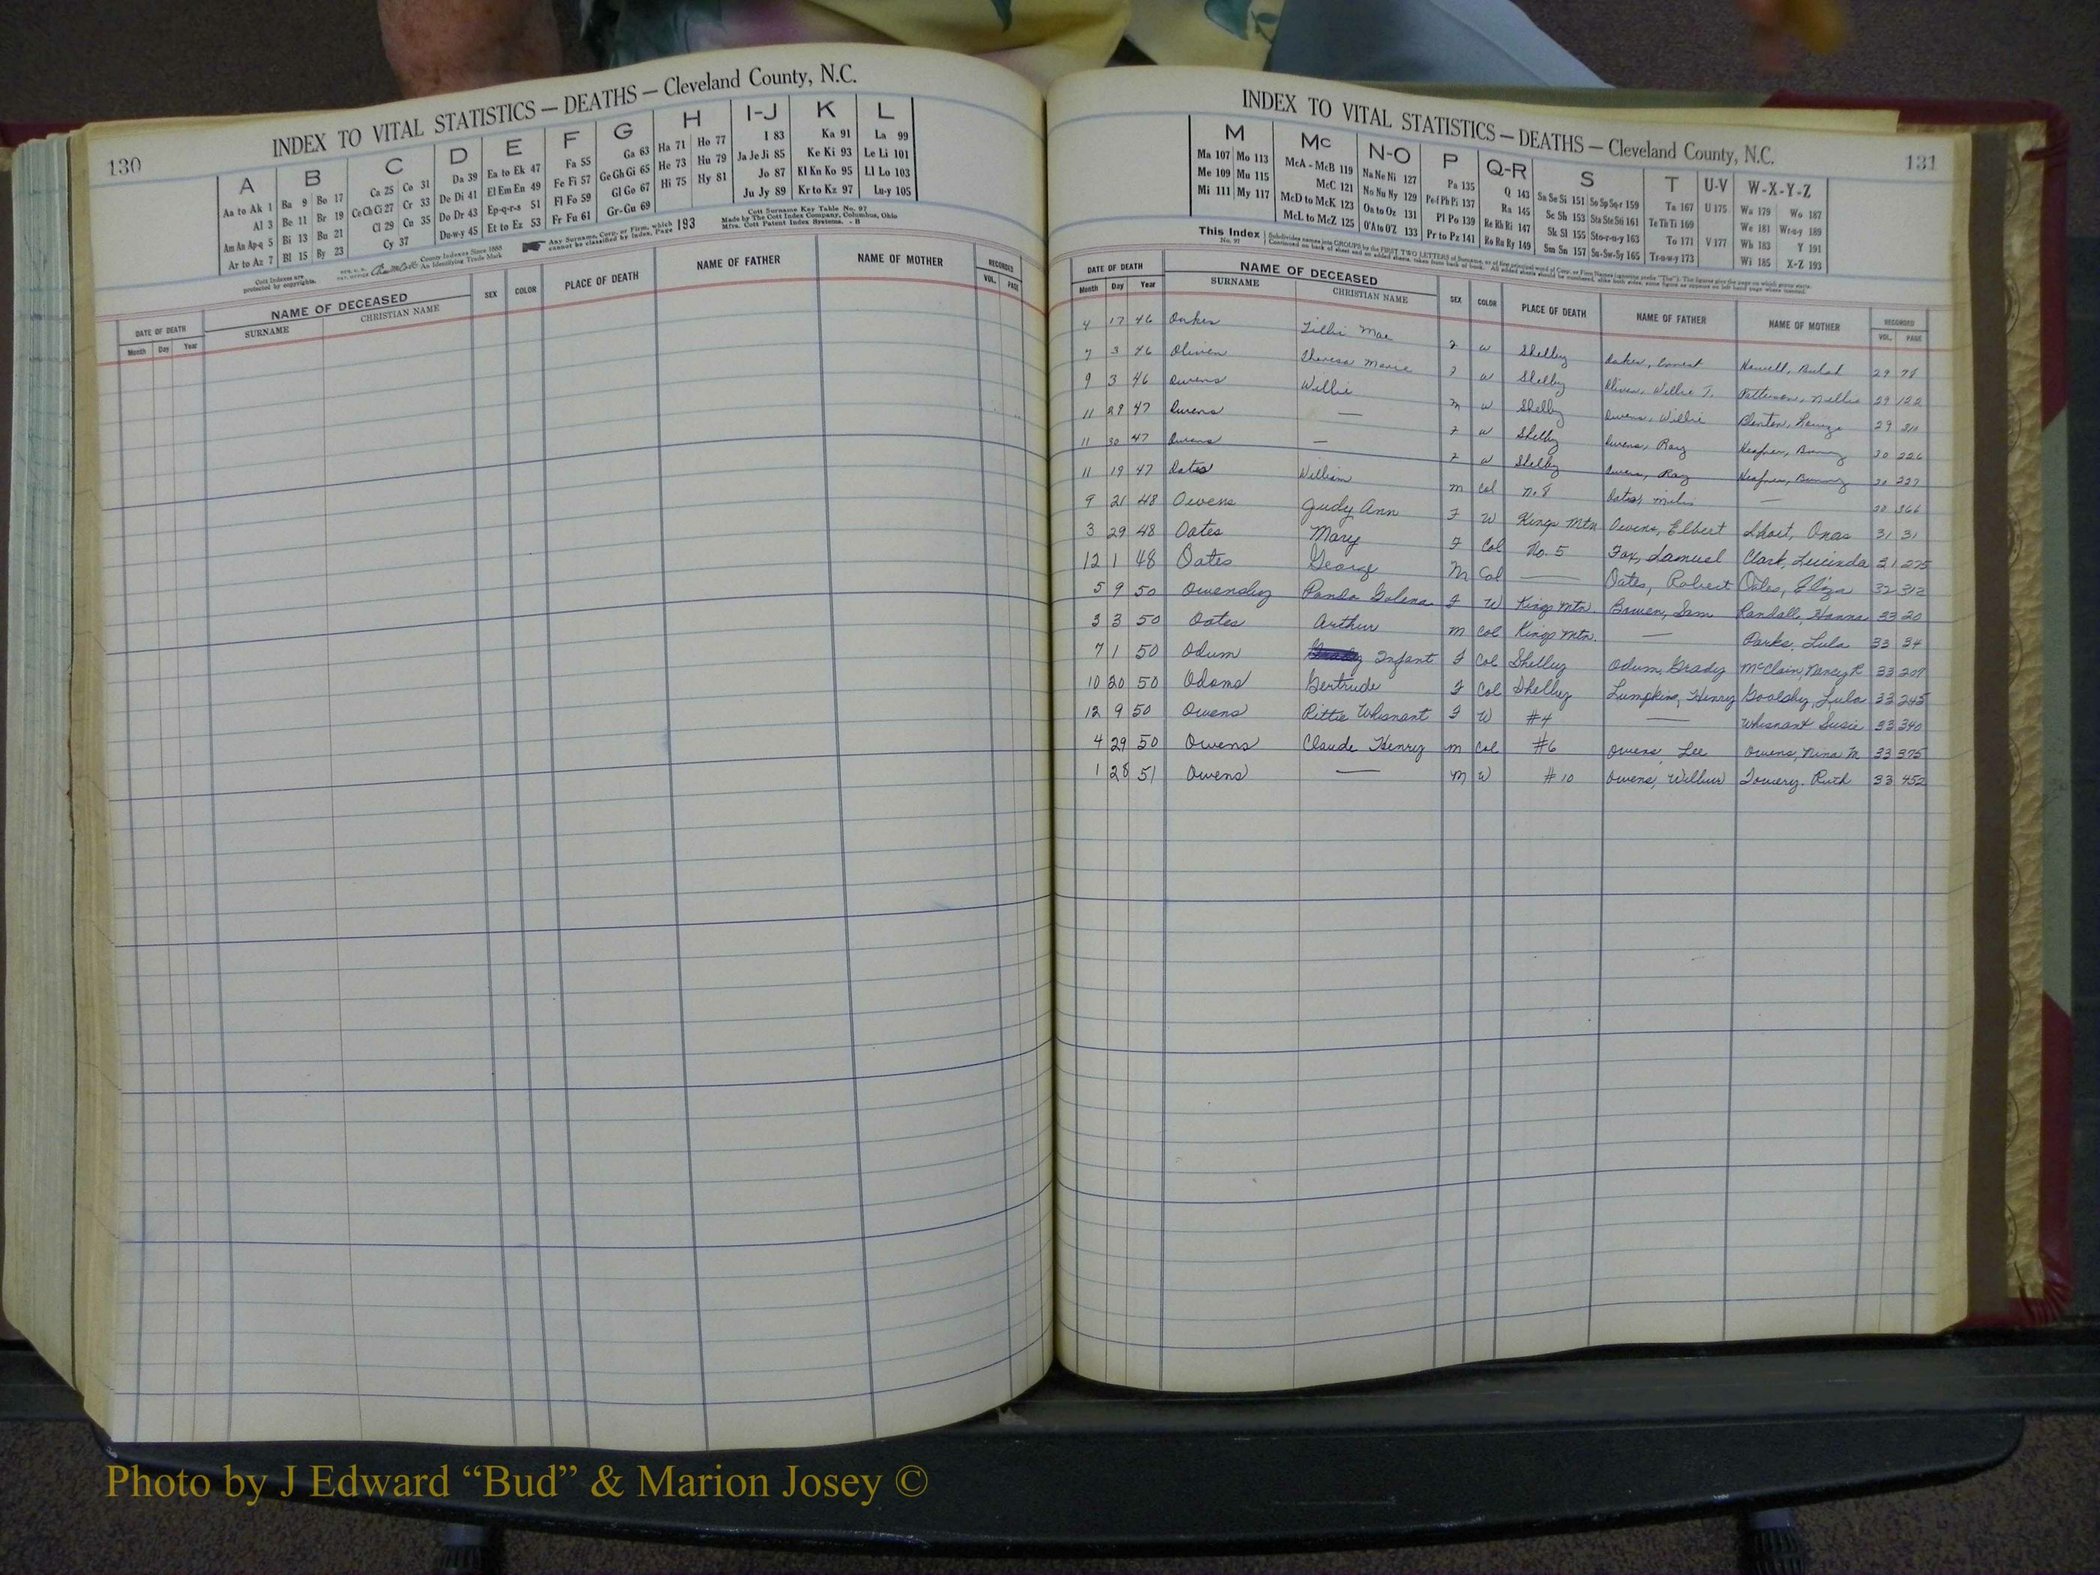 130
INDEX TO VITAL STATISTICS — DEATHS — Cleveland County, N.C.
A B C D E F G H I-J K L
Aa to Ak 1 Ba 9 Bo 17 Ca 25 Co 31 Da 39 Ea to Ek 47 Fa 55 Ga 63 Ha 71 Ho 77 I 83 Ka 91 La 99
Al 3 Be 11 Br 19 Ce Ch Ci 27 Cr 33 De Di 41 El Em En 49 Fe Fi 57 Ge Gh Gi 65 He 73 Hu 79 Ja Je Ji 85 Ke Ki 93 Le Li 101
Am An Ap-q 5 Bi 13 Bu 21 Cl 29 Cu 35 Do Dr 43 Ep-q-r-s 51 Fl Fo 59 Gl Go 67 Hi 75 Hy 81 Jo 87 Kl Kn Ko 95 Ll Lo 103
Ar to Az 7 Bl 15 By 23 Cy 37 Du-w-y 45 Et to Ez 53 Fr Fu 61 Gr-Gu 69 Ju Jy 89 Kr to Kz 97 Lu-y 105
Cott Indexes are protected by copyrights.
County Indexes Since 1888
An Identifying Trade Mark
Any Surname, Corp. or Firm, which cannot be classified by Index, Page 193
Cott Surname Key Table No. 97
Made by The Cott Index Company, Columbus, Ohio
Mfrs. Cott Patent Index Systems. - B
DATE OF DEATH NAME OF DECEASED SEX COLOR PLACE OF DEATH NAME OF FATHER NAME OF MOTHER RECORDED
Month Day Year SURNAME CHRISTIAN NAME VOL. PAGE
INDEX TO VITAL STATISTICS — DEATHS — Cleveland County, N.C.
131
M Mc N-O P Q-R S T U-V W-X-Y-Z
Ma 107 Mo 113 McA - McB 119 Na Ne Ni 127 Pa 135 Q 143 Sa Se Si 151 So Sp Sq-r 159 Ta 167 U 175 Wa 179 Wo 187
Me 109 Mu 115 McC 121 No Nu Ny 129 Pe-f Ph Pi 137 Ra 145 Sc Sh 153 Sta Ste Sti 161 Te Th Ti 169 We 181 Wr-u-y 189
Mi 111 My 117 McD to McK 123 Oa to Oz 131 Pl Po 139 Re Rh Ri 147 Sk Sl 155 Sto-r-u-y 163 To 171 V 177 Wh 183 Y 191
McL to McZ 125 O'A to O'Z 133 Pr to Pz 141 Ro Ru Ry 149 Sm Sn 157 Su-Sw-Sy 165 Tr-u-w-y 173 Wi 185 X-Z 193
This Index No. 97 Subdivides names into GROUPS by the FIRST TWO LETTERS of Surname
DATE OF DEATH NAME OF DECEASED SEX COLOR PLACE OF DEATH NAME OF FATHER NAME OF MOTHER RECORDED
Month Day Year SURNAME CHRISTIAN NAME VOL. PAGE
4 17 46 Oakes Lillie Mae F W Shelby Oakes, Ernest Howell, Beulah 29 78
7 3 46 Oliver Theresa Marie F W Shelby Oliver, Willie T. Patterson, Nellie 29 122
9 3 46 Owens Willie M W Shelby Owens, Willie Benton, 29 311
11 29 47 Owens — F W Shelby Owens, Ray 30 226
11 30 47 Owens — F W Shelby Owens, Ray 30 227
11 19 47 Oates William M Col No. 8 Oates, — 30 366
9 21 48 Owens Judy Ann F W Kings Mtn Owens, Elbert Short, 31 31
3 29 48 Oates Mary F Col No. 5 Fox, Samuel Clark, Lucinda 31 275
12 1 48 Oates George M Col — Oates, Robert Oates, Eliza 32 312
5 9 50 Owensby Panda Galena F W Kings Mtn. Bowen, Sam Randall, Hanna 33 20
3 3 50 Oates Arthur M Col Kings Mtn. — Parks, Lula 33 34
7 1 50 Odum Infant F Col Shelby Odum, Grady McClain, Nancy R 33 209
10 20 50 Odoms Gertrude F Col Shelby Lumpkins, Henry Goolsby, Lula 33 245
12 9 50 Owens Rittie Whisnant F W #4 — Whisnant Susie 33 340
4 29 50 Owens Claude Henry M Col #6 Owens, Lee Owens, Nina M 33 375
1 28 51 Owens — M W #10 Owens, Wilbur Towery, Ruth 33 452
Photo by J Edward “Bud” & Marion Josey ©